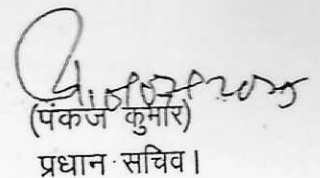 (पंकज कुमार)
प्रधान सचिव।